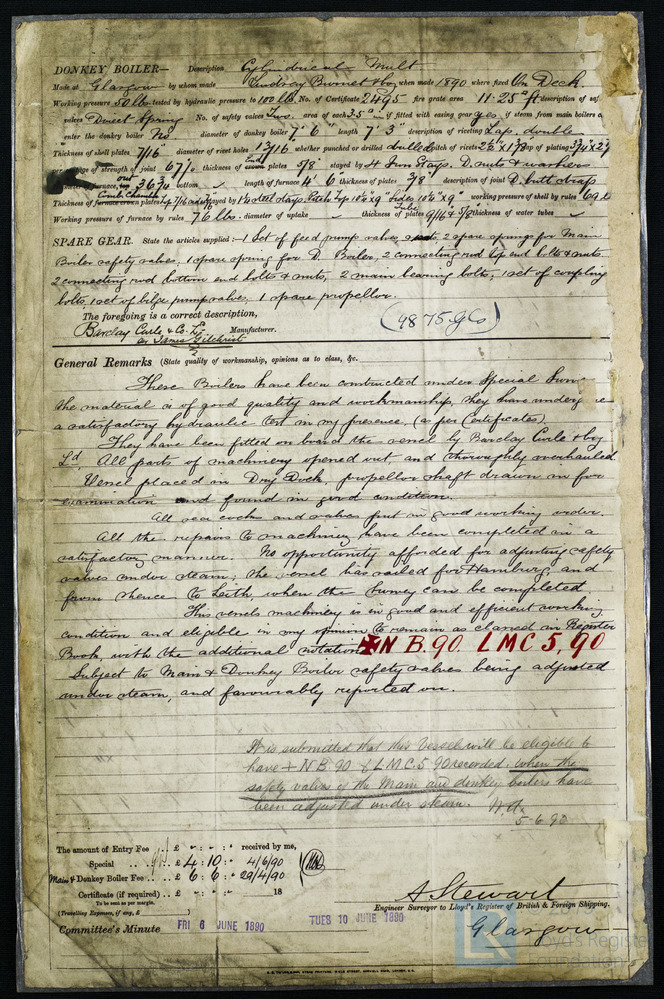 DONKEY BOILER— Description Cylindrical Mult
Made at Glasgow by whom made Lindsay Burnet & Coy when made 1890 where fixed On Deck
Working pressure 50 lbs tested by hydraulic pressure to 100 lbs No. of Certificate 2495 fire grate area 11.25 ft description of saf
valves Direct Spring No. of safety valves Two area of each 3.5" if fitted with easing gear yes if steam from main boilers c
enter the donkey boiler No diameter of donkey boiler 7' 6" length 7' 3" description of riveting Lap, double
Thickness of shell plates 7/16" diameter of rivet holes 13/16 whether punched or drilled drilled pitch of rivets lap of plating
of strength of joint 67% thickness of End plates 5/8" stayed by 4 Iron Stays. D. nuts & washers
furnace, out 36 bottom length of furnace 4' 6" thickness of plates 3/8" description of joint D. butt straps
Thickness of plates stayed by working pressure of shell by rules 69 lb
Working pressure of furnace by rules 76 lb. diameter of uptake thickness of plates 9/16 & 5/8 thickness of water tubes
SPARE GEAR. State the articles supplied:— 1 Set of feed pump valves, 2 spare springs for Main
Boiler safety valves, 1 spare spring for D. Boiler, 2 connecting rod top end bolts & nuts
2 connecting rod bottom end bolts & nuts, 2 main bearing bolts, 1 set of coupling
bolts, 1 set of bilge pump valves, 1 spare propellor.
The foregoing is a correct description,
Barclay Curle & Co. Ld Manufacturer.
James Gilchrist
(9875. Gls)
General Remarks (State quality of workmanship, opinions as to class, &c.
These Boilers have been constructed under Special Surv
the material is of good quality and workmanship, they have undergone
a satisfactory hydraulic test in my presence, (as per Certificates).
They have been fitted on board the vessel by Barclay Curle & Coy
Ld. All parts of machinery opened out, and thoroughly overhauled
Vessel placed in Dry Dock, propellor shaft drawn in for
examination and found in good condition.
All sea cocks and valves put in good working order.
All the repairs to machinery have been completed in a
satisfactory manner. No opportunity afforded for adjusting safety
valves under steam; the vessel has sailed for Hamburg, and
from thence to Leith, when the Survey can be completed
This vessels machinery is in good and efficient working
condition and eligible in my opinion to remain as classed in Register
Book, with the additional notation N B. 90. LMC 5, 90
Subject to Main & Donkey Boiler safety valves being adjusted
under steam, and favourably reported on.
It is submitted that this Vessel will be eligible to
have + N.B. 90 & L.M.C. 5 90 recorded when the
safety valves of the Main and donkey boilers have
been adjusted under steam.
5.6.90
The amount of Entry Fee . . £ : : received by me,
Special . . £ 4 : 10 : 4/6/90
Main & Donkey Boiler Fee . . £ 6 : 6 : 29/4/90
Certificate (if required) . . £ : : 18
To be sent as per margin.
(Travelling Expenses, if any, £ )
A Stewart
Engineer Surveyor to Lloyd's Register of British & Foreign Shipping.
Glasgow
Committee's Minute FRI 6 JUNE 1890 TUES 10 JUNE 1890
Lloyd's Register
Foundation